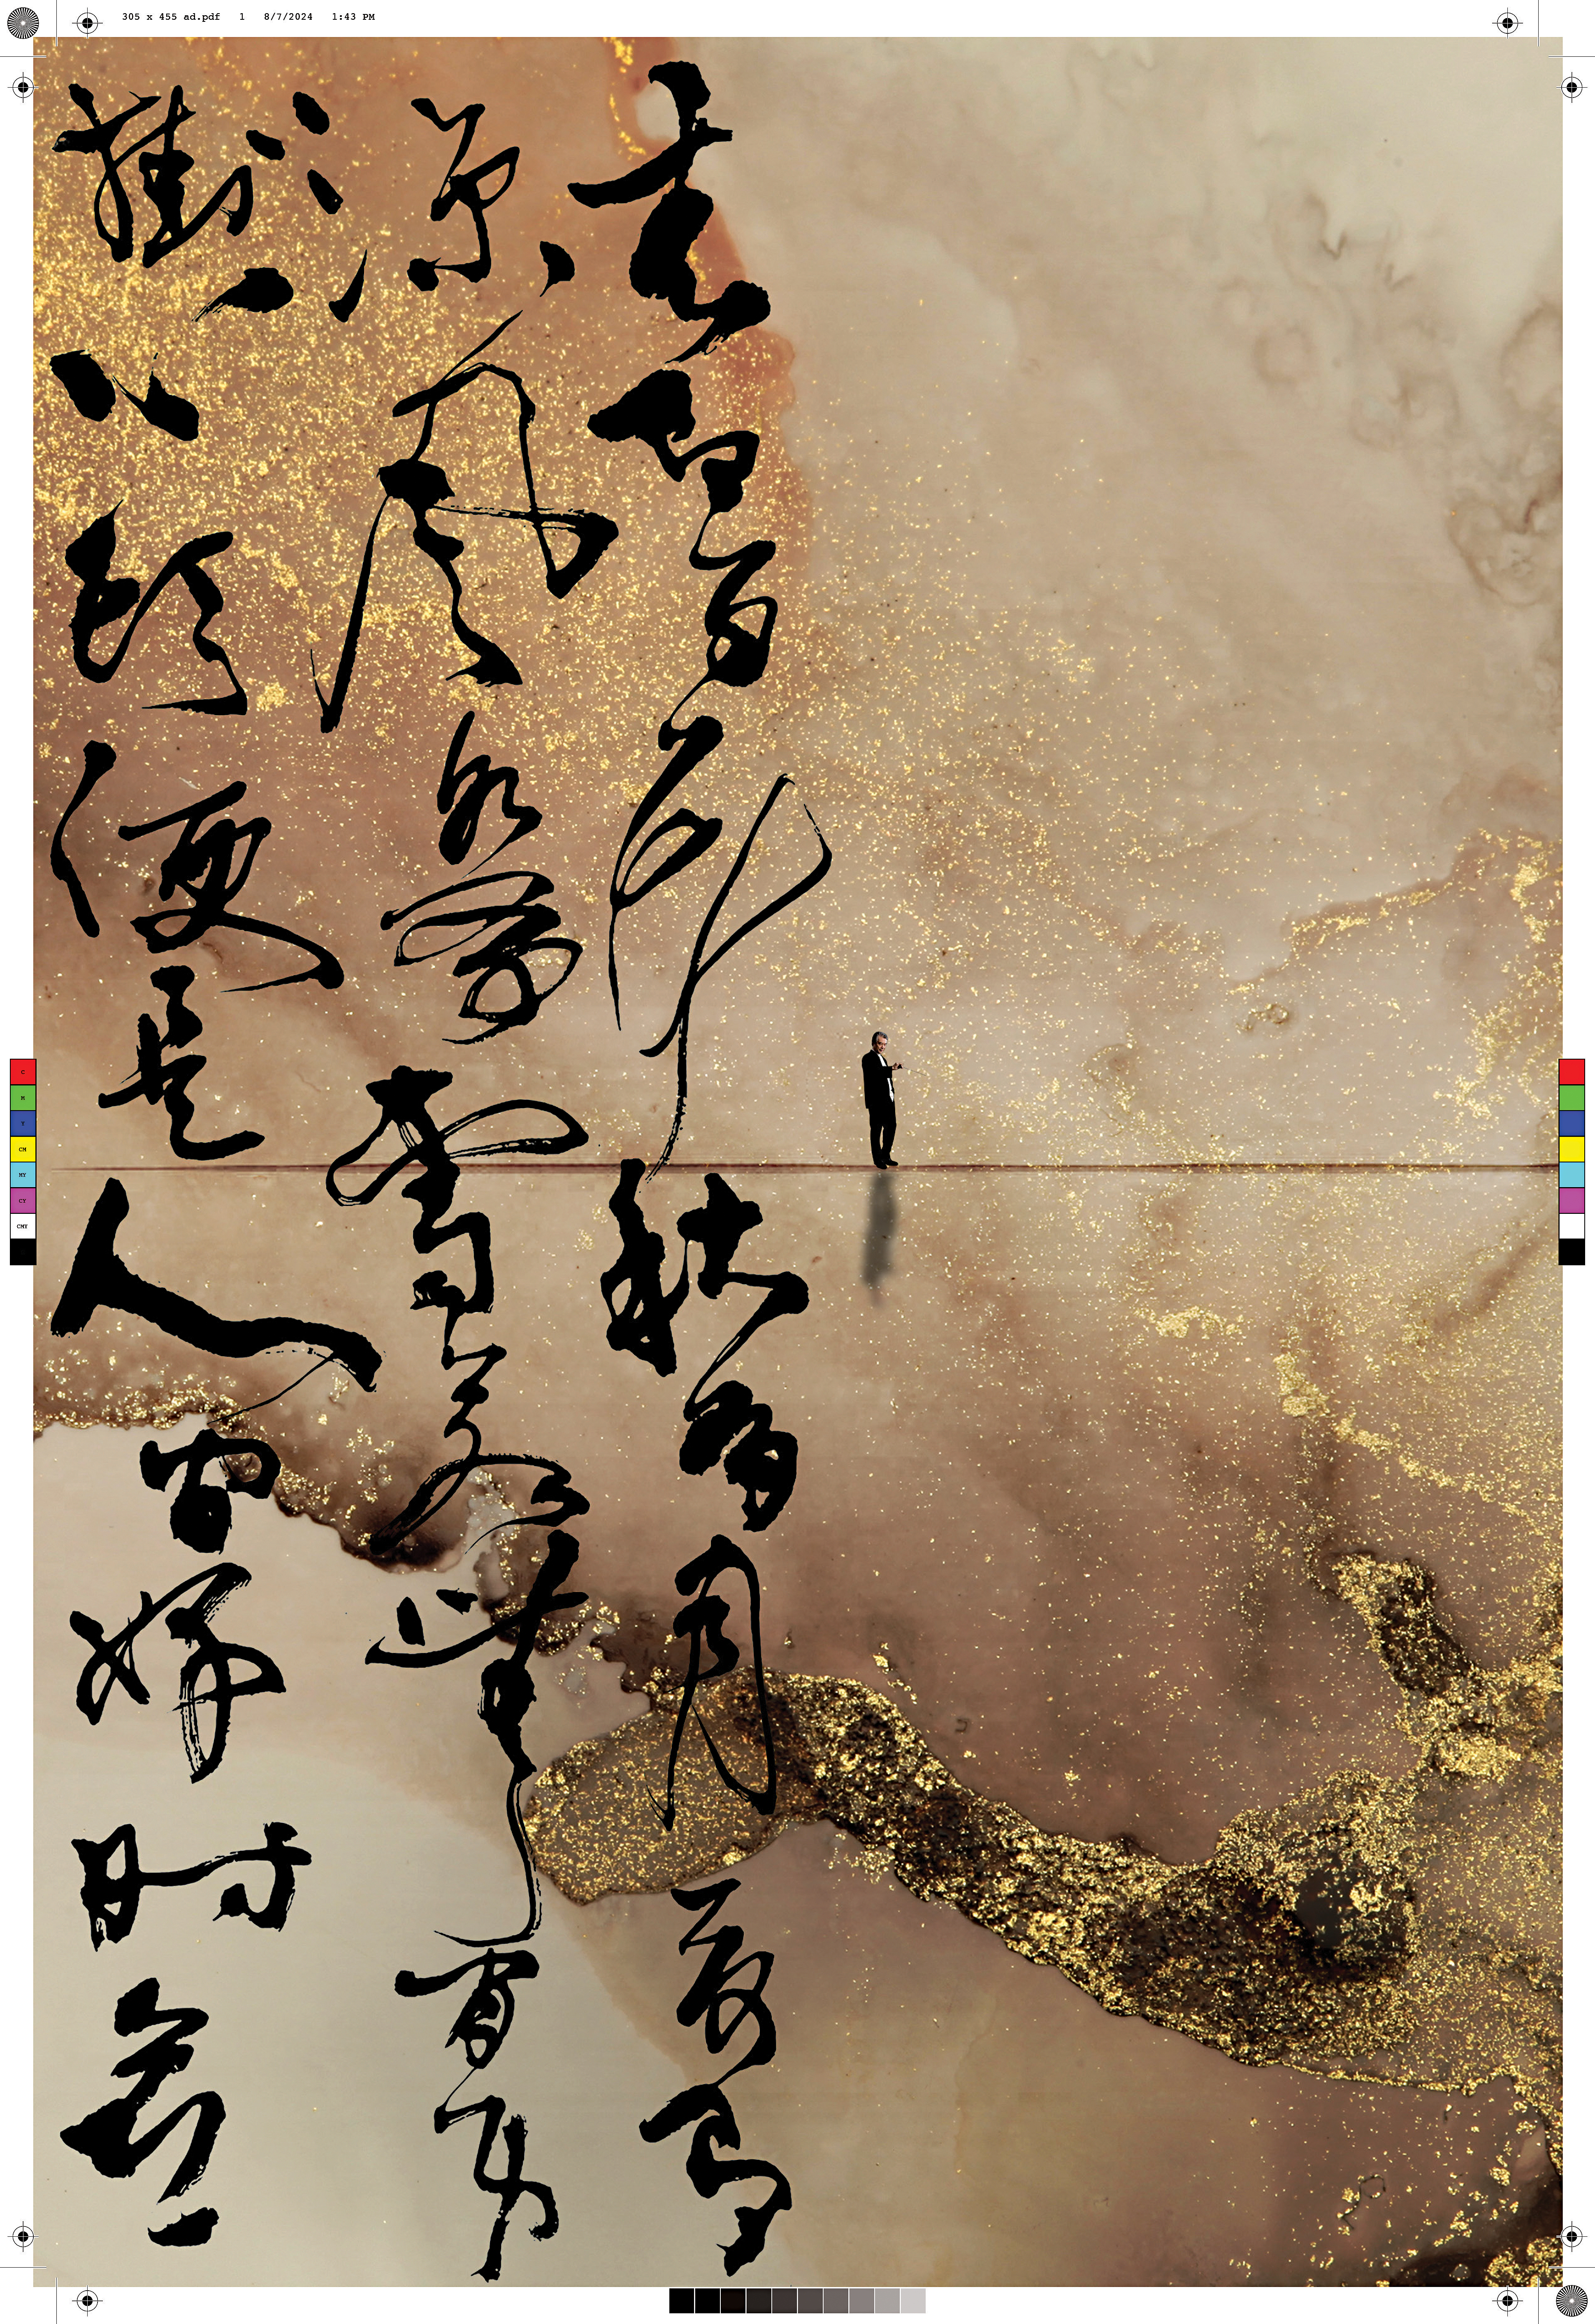 305 x 455 ad.pdf 1 8/7/2024 1:43 PM
春有百花秋有月夏有
涼風冬有雪若無閒事
掛心頭便是人間好時節
C
M
Y
CM
MY
CY
CMY